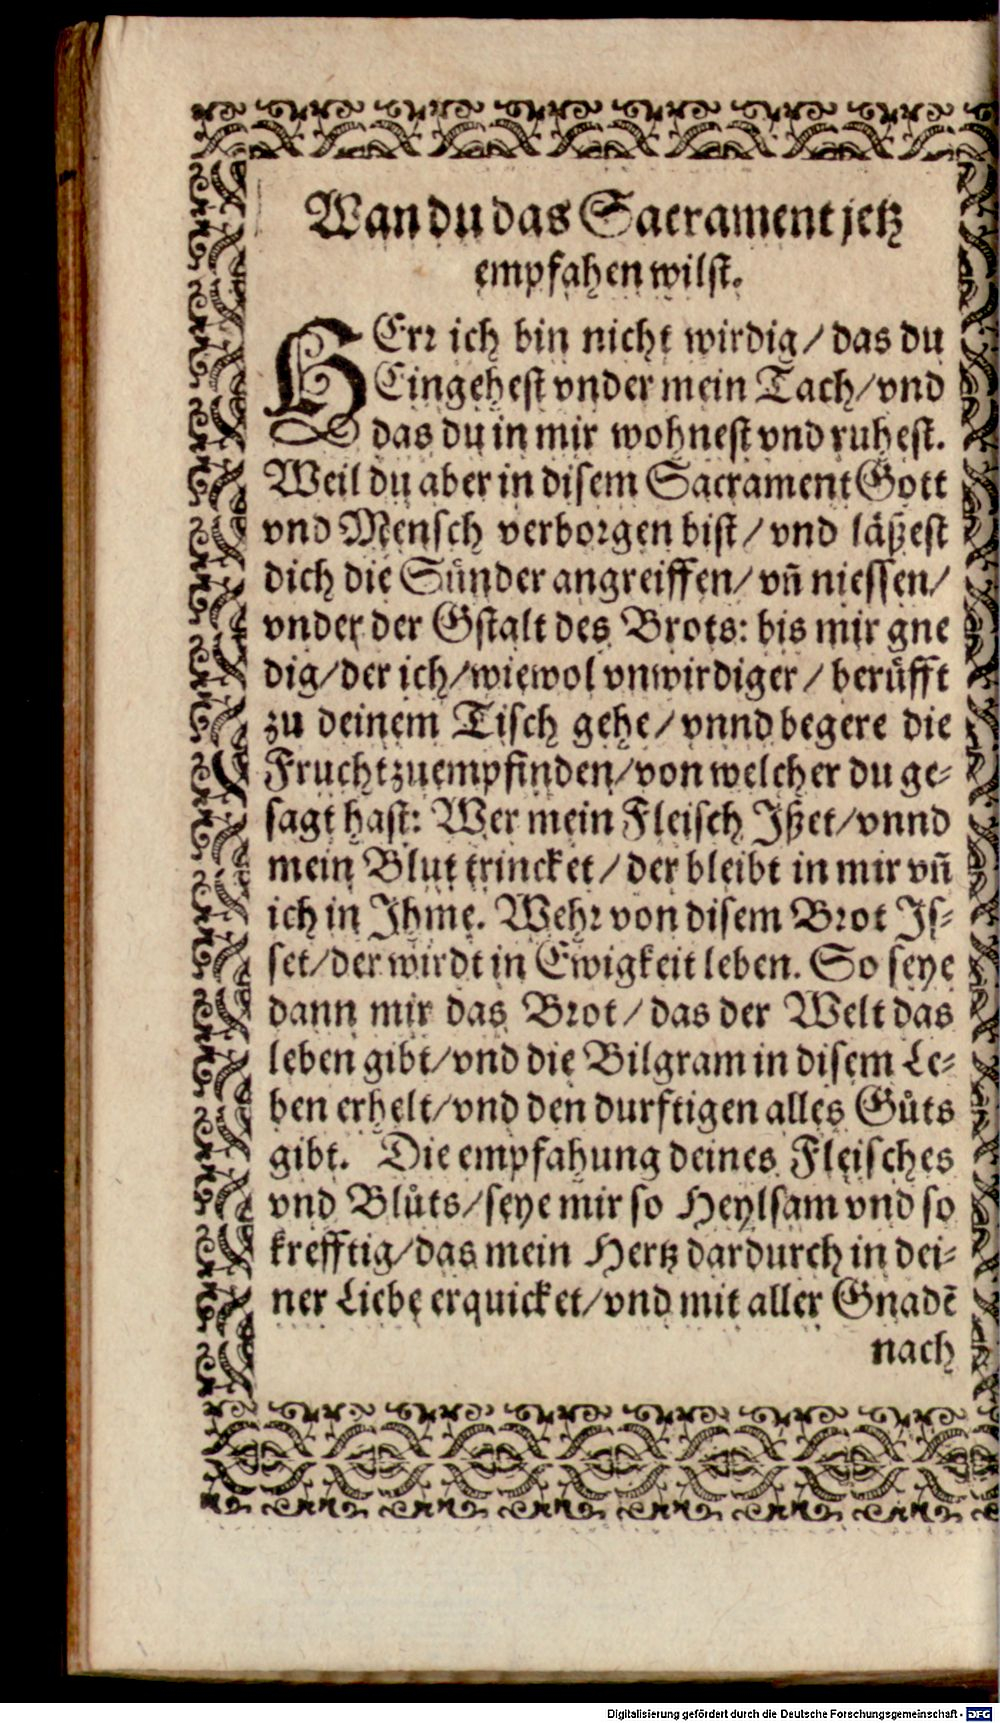 Wan du das Sacrament jetz
empfahen wilst.
HErr ich bin nicht wirdig/ das du
Eingehest vnder mein Tach/ vnd
das du in mir wohnest vnd ruhest.
Weil du aber in disem Sacrament Gott
vnd Mensch verborgen bist/ vnd läßest
dich die Sünder angreiffen/ vñ niessen/
vnder der Gstalt des Brots: bis mir gne
dig/ der ich/ wiewol vnwirdiger/ berüfft
zu deinem Tisch gehe/ vnnd begere die
Frucht zuempfinden/ von welcher du ge-
sagt hast: Wer mein Fleisch Jßet/ vnnd
mein Blut trincket/ der bleibt in mir vñ
ich in Jhme. Wehr von disem Brot Js-
set/ der wirdt in Ewigkeit leben. So seye
dann mir das Brot/ das der Welt das
leben gibt/ vnd die Bilgram in disem Le-
ben erhelt/ vnd den durftigen alles Gůts
gibt. Die empfahung deines Fleisches
vnd Blůts/ seye mir so Heylsam vnd so
krefftig/ das mein Hertz dardurch in dei-
ner Liebe erquicket/ vnd mit aller Gnadẽ
nach
Digitalisierung gefördert durch die Deutsche Forschungsgemeinschaft - DFG